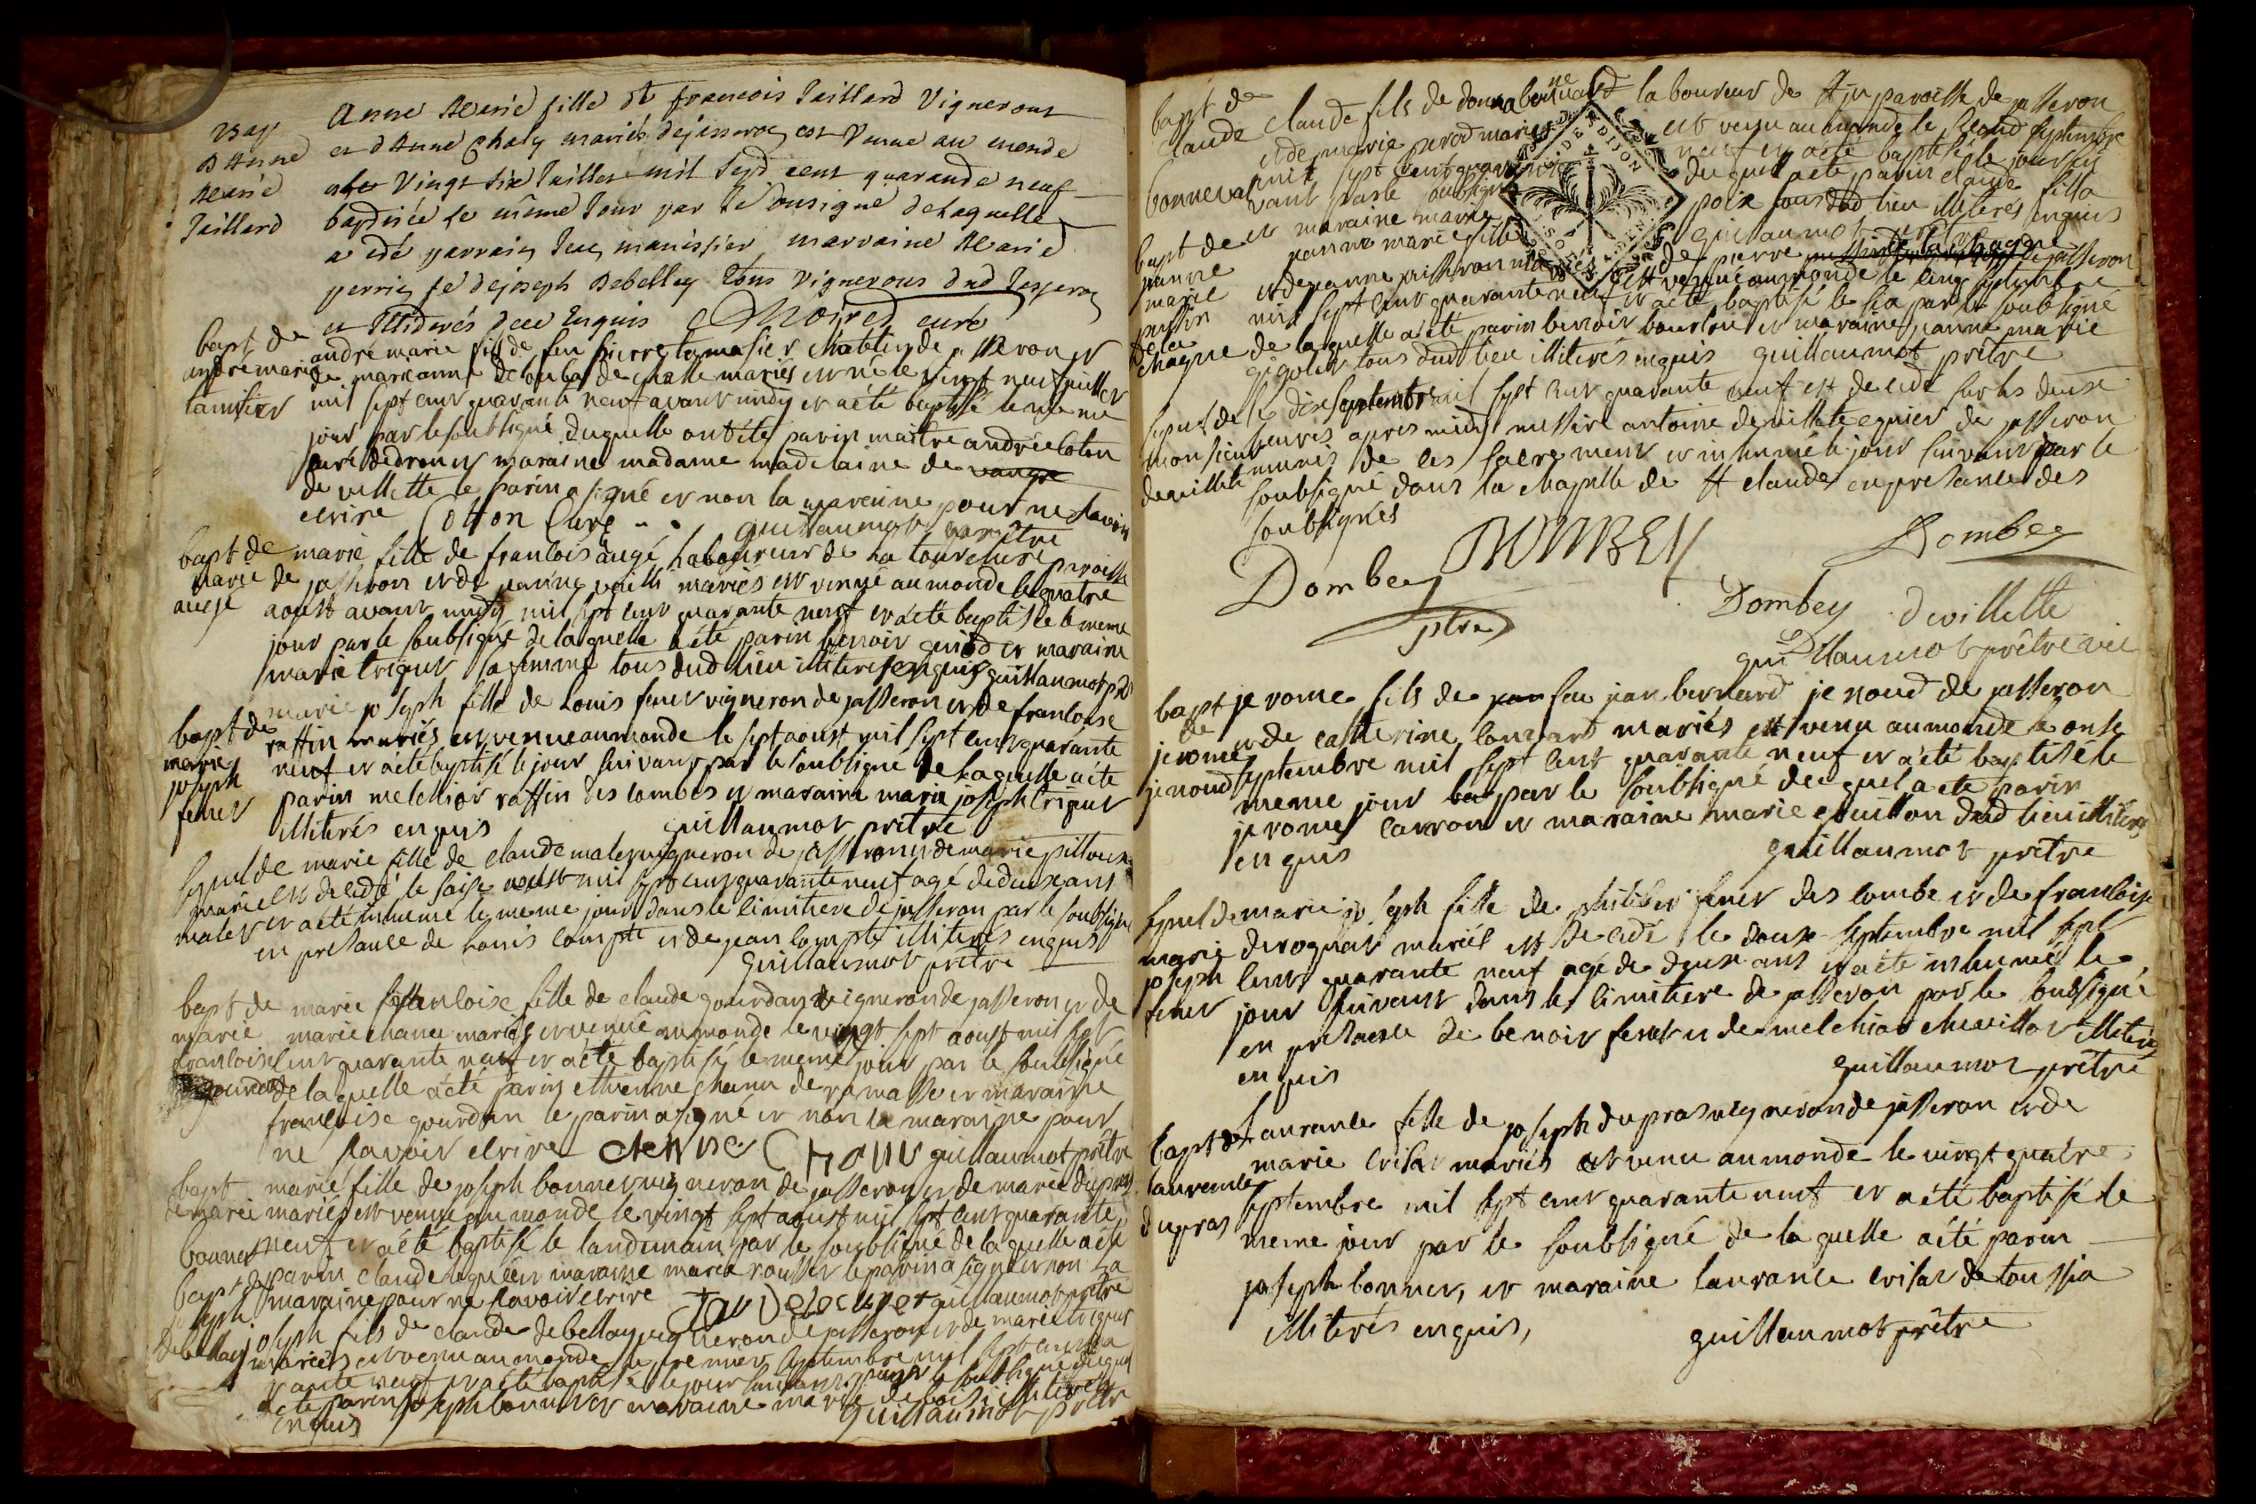 Bap
D'Anne
Marie
Paillard
Anne Marie fille de francois Paillard Vigneron
et d'Anne Chaly mariés dejasseron est Venue au monde
le Vingt six Juillet mil Sept cent quarande neuf
baptisée le même Jour par le Sousigné de Laquelle
a été parrain Jean manissier marraine Marie
perrin fe dejoseph Debelley Tous Vignerons dud Jasseron
et Illiderés dece Enquis Moired curé
bapt de
andré marie
tamisier
andré marie fils de feu pierre tamisier chatelin de jasseron et
de marieanne mariés est né le vingt neuf juillet
mil sept cent quarante neuf avant midy et a été baptisé le meme
jour par le soubsigné duquelle ont été parin maitre andrée Coton
curé dedrom et maraine madame madelaine de
de villette le parin a signé et non la maraine pour ne savoir
ecrire Cotton Curé guillaumot pretre
bapt de
marie
augé
marie fille de francois augé laboureur de la tour paroisse
de jasseron et de jeanne mariés est venue au monde le quatre
aoust avant midy mil sept cent quarante neuf et a été baptisé le meme
jour par le soubsigné de laquelle a été parin benoit et maraine
marie triquet sa femme tous dud lieu illiteres enquis guillaumot ptre
bapt de
marie
joseph
feuet
marie joseph fille de Louis feuet vigneron de jasseron et de francoise
raffin mariés est venue au monde le sept aoust mil sept cent quarante
neuf et a été baptisé le jour suivant par le soubsigné de laquelle a été
parin melchior raffin des combes et maraine marie joseph triquet
illiterés enquis guillaumot prêtre
sepul de
marie
malet
marie fille de claude malet vigneron de jasseron et de marie
est decedé le saise aoust mil sept cent quarante neuf agé de deux ans
et a été inhumé le meme jour dans le cimitiere de jasseron par le soubsigné
en presance de Louis compte et de jean compte illiterés enquis
guillaumot prêtre
bapt de
marie
francoise
gourdan
marie francoise fille de claude gourdan vigneron de jasseron et de
marie chanel mariés est venuë au monde le vingt sept aoust mil sept
cent quarante neuf et a été baptisé le meme jour par le soubsigné
de laquelle a été parin ethienne chanu de ramasse et maraine
francoise gourdan le parin a signé et non la maraine pour
ne savoir ecrire guillaumot prêtre
bapt
de marie
bonnet
marie fille de joseph bonnet vigneron de jasseron et de marie dupras
mariés est venue au monde le vingt sept aoust mil sept cent quarante
neuf et a été baptisé le landemain par le soubsigné de laquelle a été
parin claude et maraine marie rousset le parin a signé et non la
maraine pour ne savoir ecrire guillaumot prêtre
bapt de
joseph
debellay
joseph fils de claude debellay vigneron de jasseron et de marie triquet
mariés est venu au monde le premier septembre mil sept cent qua
rante neuf et a été baptisé le jour suivant par le soubsigné duquel
a été parin joseph bonnet et maraine marie illiterés
enquis guillaumot prêtre
bapt de
claude
bonnevat
claude fils de laboureur de paroisse de jasseron
et de marie perod mariés est venu au monde le second septembre
mil sept cent quarante neuf et a été baptisé le jour sui
vant par le soubsigné duquel a été parin claude
et maraine marie poix tous dud lieu illiterés enquis
guillaumot
GEN. DE DIJON
bapt de
janne
marie
de la
chagne
janne marie fille de pierre de jasseron
et de janne mariés est venue au monde le cinq septembre
mil sept cent quarante neuf et a été baptisé le six par le soubsigné
de laquelle a été parin benoit bourlou et maraine janne marie
gigolet tous dud lieu illiterés enquis guillaumot prêtre
sepul de
monsieur
devillette
le dix septembre mil sept cent quarante neuf est decedé sur les deux
heures apres midi messire antoine devillette equier de jasseron
munis de ces sacremens et inhumé le jour suivant par le
soubsigné dans la chapelle de st claude en presance des
soubsignés
Dombey DOMBEY Dombey
ptre
Dombey devillette
guillaumot prêtre vic
bapt
de
jerome
jenoud
jerome fils de feu jean bernard jenoud de jasseron
et de catherine mariés est venu au monde le onse
septembre mil sept cent quarante neuf et a été baptisé le
meme jour par le soubsigné duquel a été parin
jerome carron et maraine marie guitton dud lieu illiterés
enquis guillaumot prêtre
sepul de
marie
joseph
feuet
marie joseph fille de philibert feuet des combe et de francoise
derognat mariés est decedé le douse septembre mil sept
cent quarante neuf agé de deux ans et a été inhumé le
jour suivant dans le cimitiere de jasseron par le soubsigné
en presance de benoit feuet et de melchior chevillot illiterés
enquis guillaumot prêtre
bapt de
laurence
dupras
laurance fille de joseph dupras vigneron de jasseron et de
marie mariés est venu au monde le vingt quatre
septembre mil sept cent quarante neuf et a été baptisé le
meme jour par le soubsigné de laquelle a été parin
joseph bonnet, et maraine laurance de toussia
illiterés enquis, guillaumot prêtre